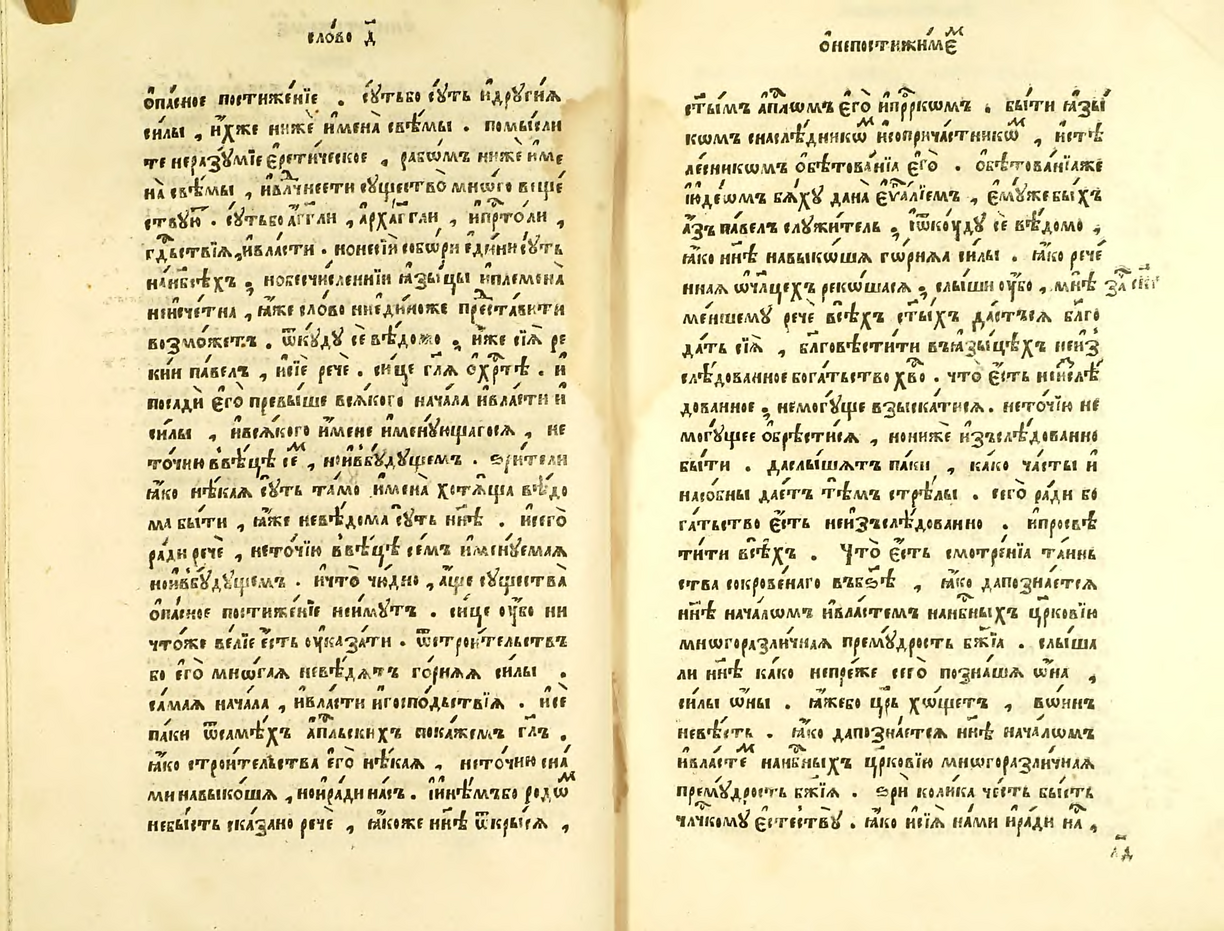 сло́во д҃
ѻ҆па́сное постиже́нїе . сꙋ́тьбо сꙋ́ть и҆дрꙋгі́ѧ
си́лы , и҆́хже нижѐ и҆мена̀ свѣ́мы . помы́сли
те неразꙋ́мїе є҆рети́ческое , рабѡ́мъ нижѐ и҆ме
на̀ свѣ́мы , и҆влⷣчнести сꙋщество̀ мно́го вѣще
ствꙋ́ю . сꙋ́тьбо а҆́гг҃ли , а҆рха́гг҃ли , и҆прⷭ҇то́ли ,
гдⷭ҇ьствїѧ , и҆вла́сти . ноне сі́и собо́ри є҆ди́ни сꙋ́ть
нанб҃сѣ́хъ , нобесчи́сленнїи ꙗ҆зы́цы и҆племена̀
неисче́тна , ꙗ҆́же сло́во ниеди́ноже предста́вити
возмо́жетъ . ѿкꙋ́дꙋ сѐ вѣ́домо , и҆́же сїѧ̀ ре
кі́и па́велъ , и҆сїѐ речѐ . си́це гл҃ѧ ѻ҆хрⷭ҇тѣ̀ . и҆
посадѝ є҆го̀ превы́ше вса́кого нача́ла и҆вла́сти и҆
си́лы , и҆вса́кого и҆́мене и҆менꙋ́ющагосѧ , не
то́чию ввѣ́цѣ сеⷨ , нои҆вбꙋ́дꙋщемъ . ѕри́тели
ꙗ҆́ко нѣ́каѧ сꙋ́ть та́мо и҆мена̀ хотѧ́ща вѣ́до
ма бы́ти , ꙗ҆́же невѣ́дома сꙋ́ть нн҃ѣ . и҆сего̀
ра́ди речѐ , нето́чїю ввѣ́цѣ се́мъ и҆менꙋ́емаѧ
нои҆вбꙋ́дꙋщемъ . и҆что̀ чю́дно , а҆́ще сꙋщества̀
ѻ҆па́сное постиже́нїе неи́мꙋтъ . си́це ᲂу҆́бо ни
что́же ве́лїе є҆́сть ᲂу҆каза́ти . ѿстрои́тельствъ
бо є҆го̀ мнѡ́гаѧ невѣ́дѧтъ го́рнѧѧ си́лы .
са́маѧ нача́ла , и҆вла́сти и҆госпо́дьствїѧ . и҆сѐ
па́ки ѿсамѣ́хъ а҆пⷭ҇льскихъ пока́жемъ гл҃ъ .
ꙗ҆́ко строи́тельства є҆го̀ нѣ́каѧ , нето́чїю сна
ми навыко́ша , нои҆ра́ди на́съ . и҆и҆нѣ́мъбо родѡⷨ
небы́сть ска́зано речѐ , ꙗ҆́коже нн҃ѣ ѿкры́сѧ ,
ѻ҆непостижи́мѣⷨ
ст҃ы́мъ а҆пⷭ҇лѡмъ є҆го̀ и҆прⷪ҇ркѡмъ . бы́ти ꙗ҆зы́
кѡмъ снаслѣ́дникѡⷨ и҆соприча́стникѡⷨ , и҆стѣ
ле́сникѡмъ ѻ҆бѣтова́нїа є҆го̀ . ѻ҆бѣтова́нїаже
і҆ꙋде́ѡмъ бѧ́хꙋ дана̀ є҆ѵⷢ҇алїемъ , є҆мꙋ́же бы́хъ
а҆́зъ па́велъ слꙋжи́тель , ѿкꙋ́дꙋ сѐ вѣ́домо ,
ꙗ҆́ко нн҃ѣ навыко́шѧ го́рнѧѧ си́лы . ꙗ҆́ко рече́
ннаѧ ѡ҆чл҃цехъ реко́шасѧ , слы́ши ᲂу҆́бо , мнѣ̀
ме́ншемꙋ речѐ всѣ́хъ ст҃ы́хъ да́стъсѧ блг҃о
да́ть сїѧ̀ , бл҃говѣсти́ти въꙗ҆зы́цѣхъ неиз
слѣ́дованное бога́тьство хв҃о . что̀ є҆́сть неислѣ́
дованное , немогꙋ́ще взыска́тисѧ . нето́чїю не
могꙋ́щее ѻ҆брѣ́стисѧ , нонижѐ и҆зъслѣ́дованно
бы́ти . даслы́шатъ па́ки , ка́ко ча́сты и҆
насо́бны дае́тъ тѣ́мъ стрѣ́лы . сего̀ ра́ди бо
га́тьство є҆́сть неизъслѣ́дованно . и҆просвѣ
ти́ти всѣ́хъ . Что̀ є҆́сть смотре́нїа та́инь
ства сокрове́наго въбз҃ѣ , ꙗ҆́ко дапозна́етсѧ
нн҃ѣ нача́лѡмъ и҆власте́мъ нанбⷭ҇ныхъ цр҃ковїю
многоразли́чнаѧ премꙋ́дрость бж҃їа . слы́ша
ли нн҃ѣ ка́ко непре́же сего̀ позна́шѧ ѡ҆на ,
си́лы ѡ҆ны . ꙗ҆́жебо цр҃ь хо́щетъ , во́инъ
невѣ́сть . ꙗ҆́ко дапозна́етсѧ нн҃ѣ нача́лѡмъ
и҆власте́ⷨ нанбⷭ҇ныхъ цр҃ковїю многоразли́чнаѧ
премꙋ́дрость бж҃їѧ . ѕрѝ коли́ка че́сть бы́сть
чл҃чкомꙋ є҆стествꙋ̀ . ꙗ҆́ко и҆сїѧ̀ на́ми и҆ра́ди на́ ,